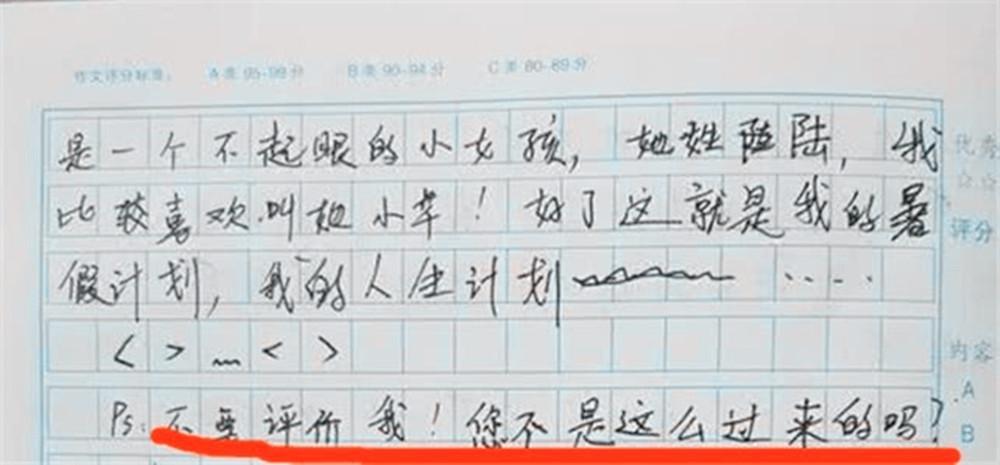 作文评分标准: A类 95-99分 B类 90-94分 C类 80-89分
是一个不起眼的小女孩,她姓陆,我
优秀
☆☆
比较喜欢叫她小苹!好了这就是我的暑
评分
假计划,我的人生计划 ....
< > ... < >
内容
A
Ps:不要评价我!您不是这么过来的吗?
B